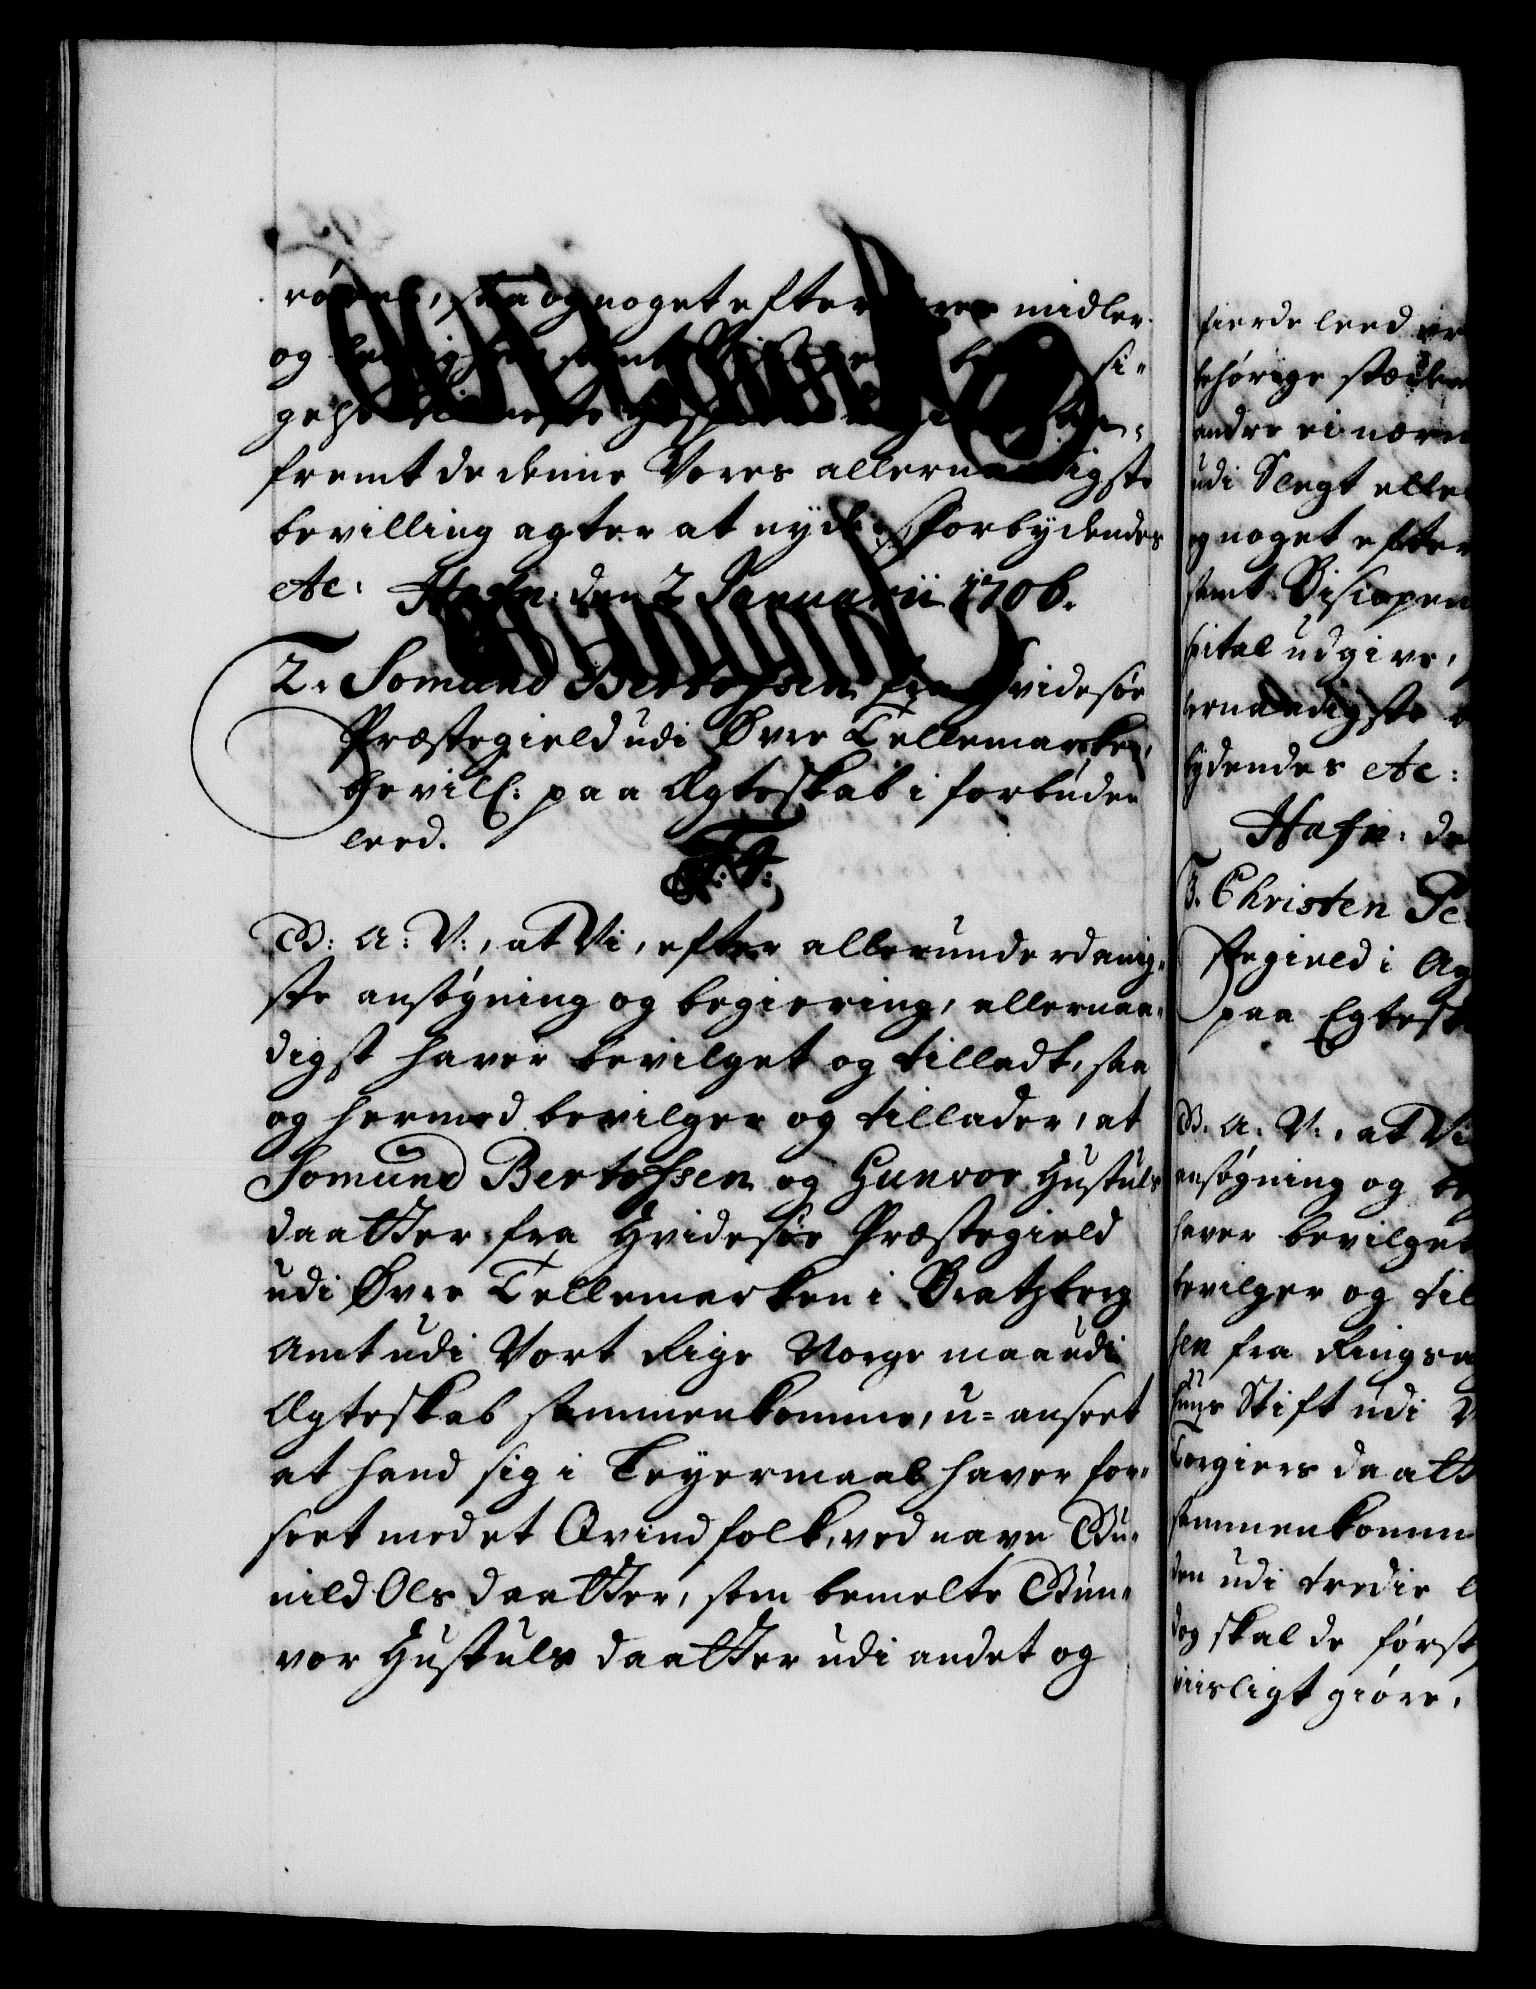 saa og noget efter deres midler
og
fremt de denne Vores allernaadigste
bevilling agter at nyde. Forbydendes
etc: Hafn: den 2 Januarii 1706.
2. Somund Bertossen fra Hvidesøe
Præstegield udi Øvre Tellemarken,
bevill: paa Ægteskab i forbuden
leed.
F. 4.
G: A: V:, at Vi, efter allerunderdanig-
ste ansøgning og begiering, allernaa-
digst haver bevilget og tilladt, saa
og hermed bevilger og tillader, at
Somund Bertossen og Gunvor Gustuls
daatter fra Hvidesøe Præstegield
udi Øvre Tellemarken i Bratzberg
Amt udi Vort Rige Norge maa udi
Ægteskab sammenkomme, u=anseet
at hand sig i Leyermaal haver for-
seet med et Qvindfolk, ved navn Gu-
nild Ols daatter, som bemelte Gun-
vor Gustuls daatter udi andet og
fierde leed
behørige stæder
andre ei nærm
udi Slegt eller
og noget efter
samt Biscopen
spital udgive,
lernaadigste
bydendes etc:
Hafn: de
3. Christen Pe
stegield i Ag
paa Egtesk
G. A. V:, at Vi
ansøgning og be
haver bevilget
bevilger og til
sen fra Ringsa
huus Stift udi
Torgiers daatt
sammenkomm
den udi tredie l
dog skal de først
viisligt giøre,